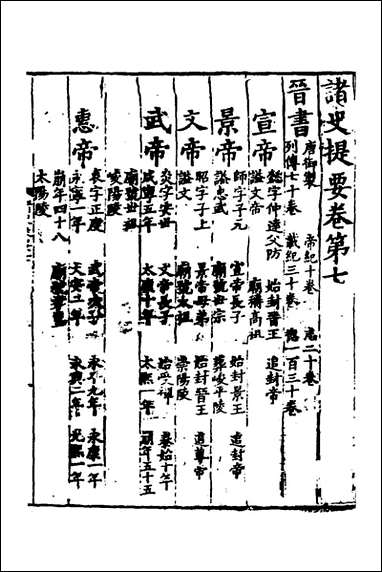 諸史提要卷第七
晉書 唐御製 帝紀十卷 志二十卷
列傳七十卷 載紀三十卷 總一百三十卷
宣帝 懿字仲達父防 始封晉王 追封帝
謚文帝 廟稱高祖
景帝 師字子元 宣帝長子 始封景王 追封帝
謚忠武 廟號世宗 葬峻平陵
文帝 昭字子上 景帝母弟 始封晉王 追尊帝
謚文 廟號太祖 崇陽陵
武帝 炎字安世 文帝長子 始受禪 泰始十年
咸寧五年 太康十年 太熙一年 崩年五十五
廟號世祖
峻陽陵
惠帝 衷字正度 武帝次子 永平九年 永康一年
永寧一年 太安二年 永興二年 光熙一年
崩年四十八 廟號孝惠
太陽陵